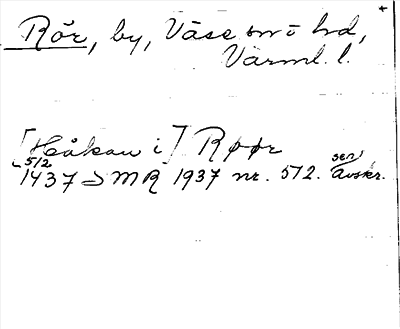 Rör, by, Väse sn i hd,
Värml. l.
[Håkan i] Røør
5/2 1437 SMR 1937 nr. 572. sen avskr.